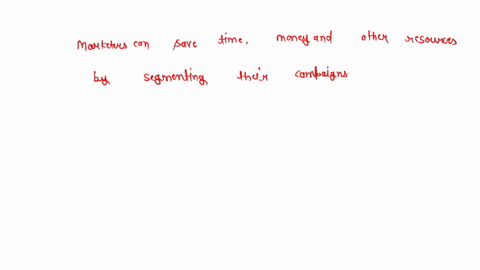 Marketers can save time, money and other resources
by segmenting their campaigns.